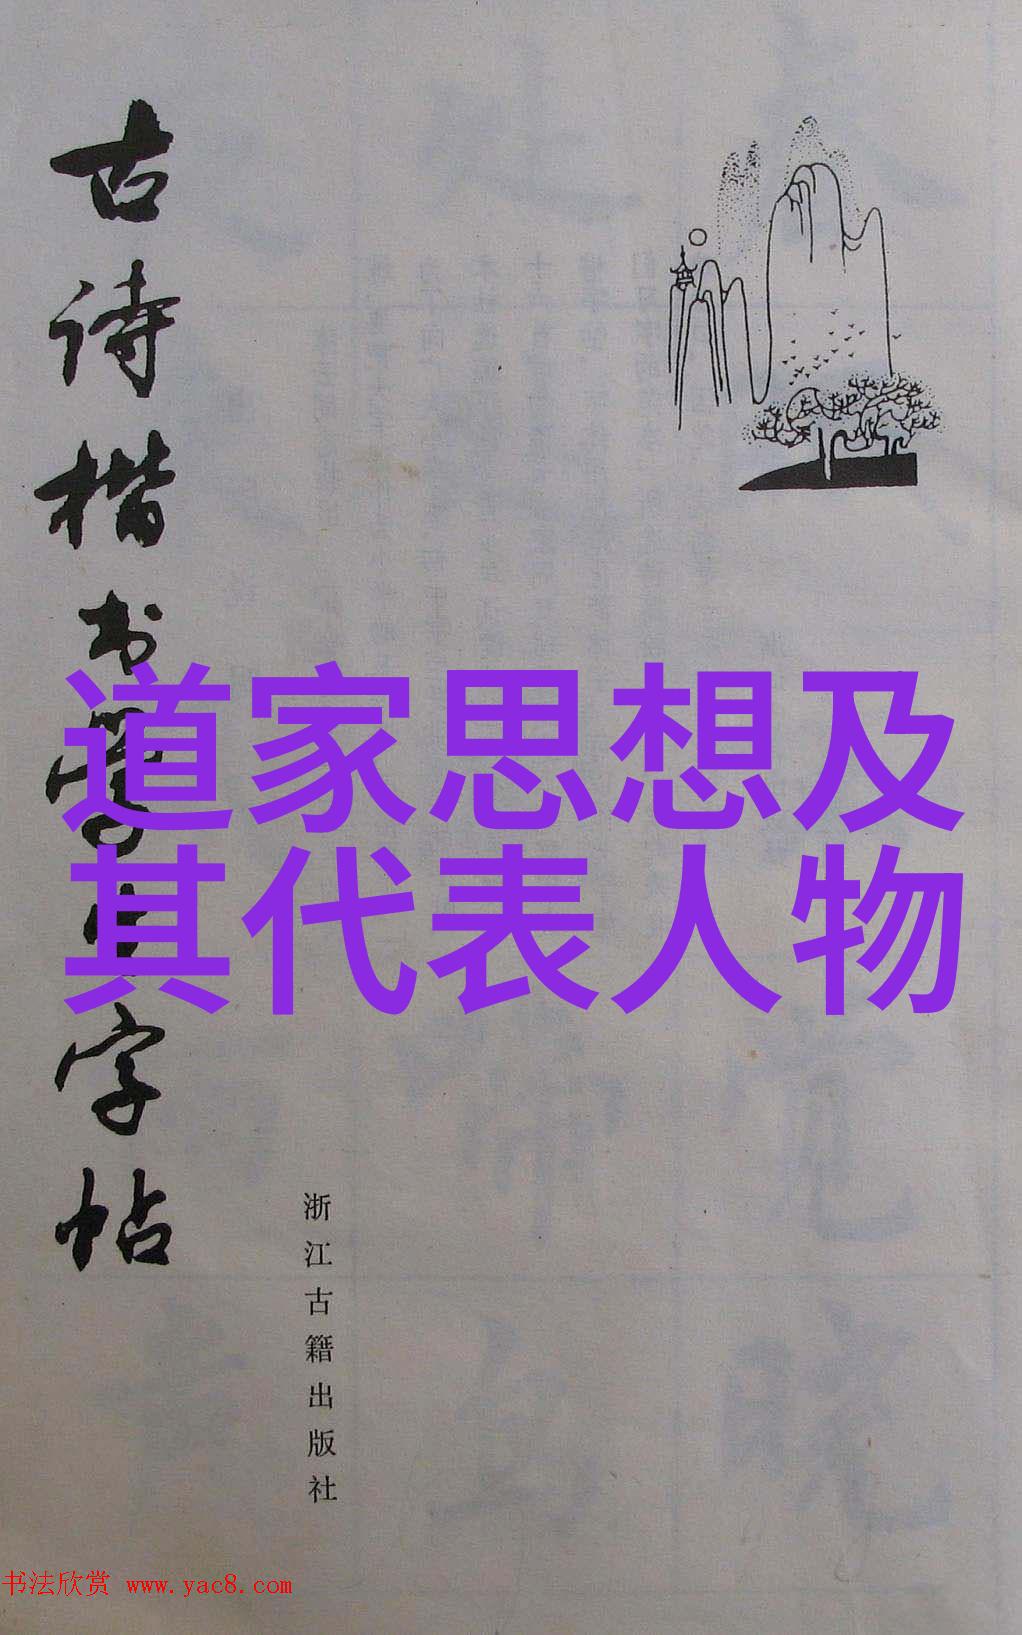 古诗楷书学生字帖
道家思想及
其代表人物
浙江古籍出版社
书法欣赏 www.yac8.com